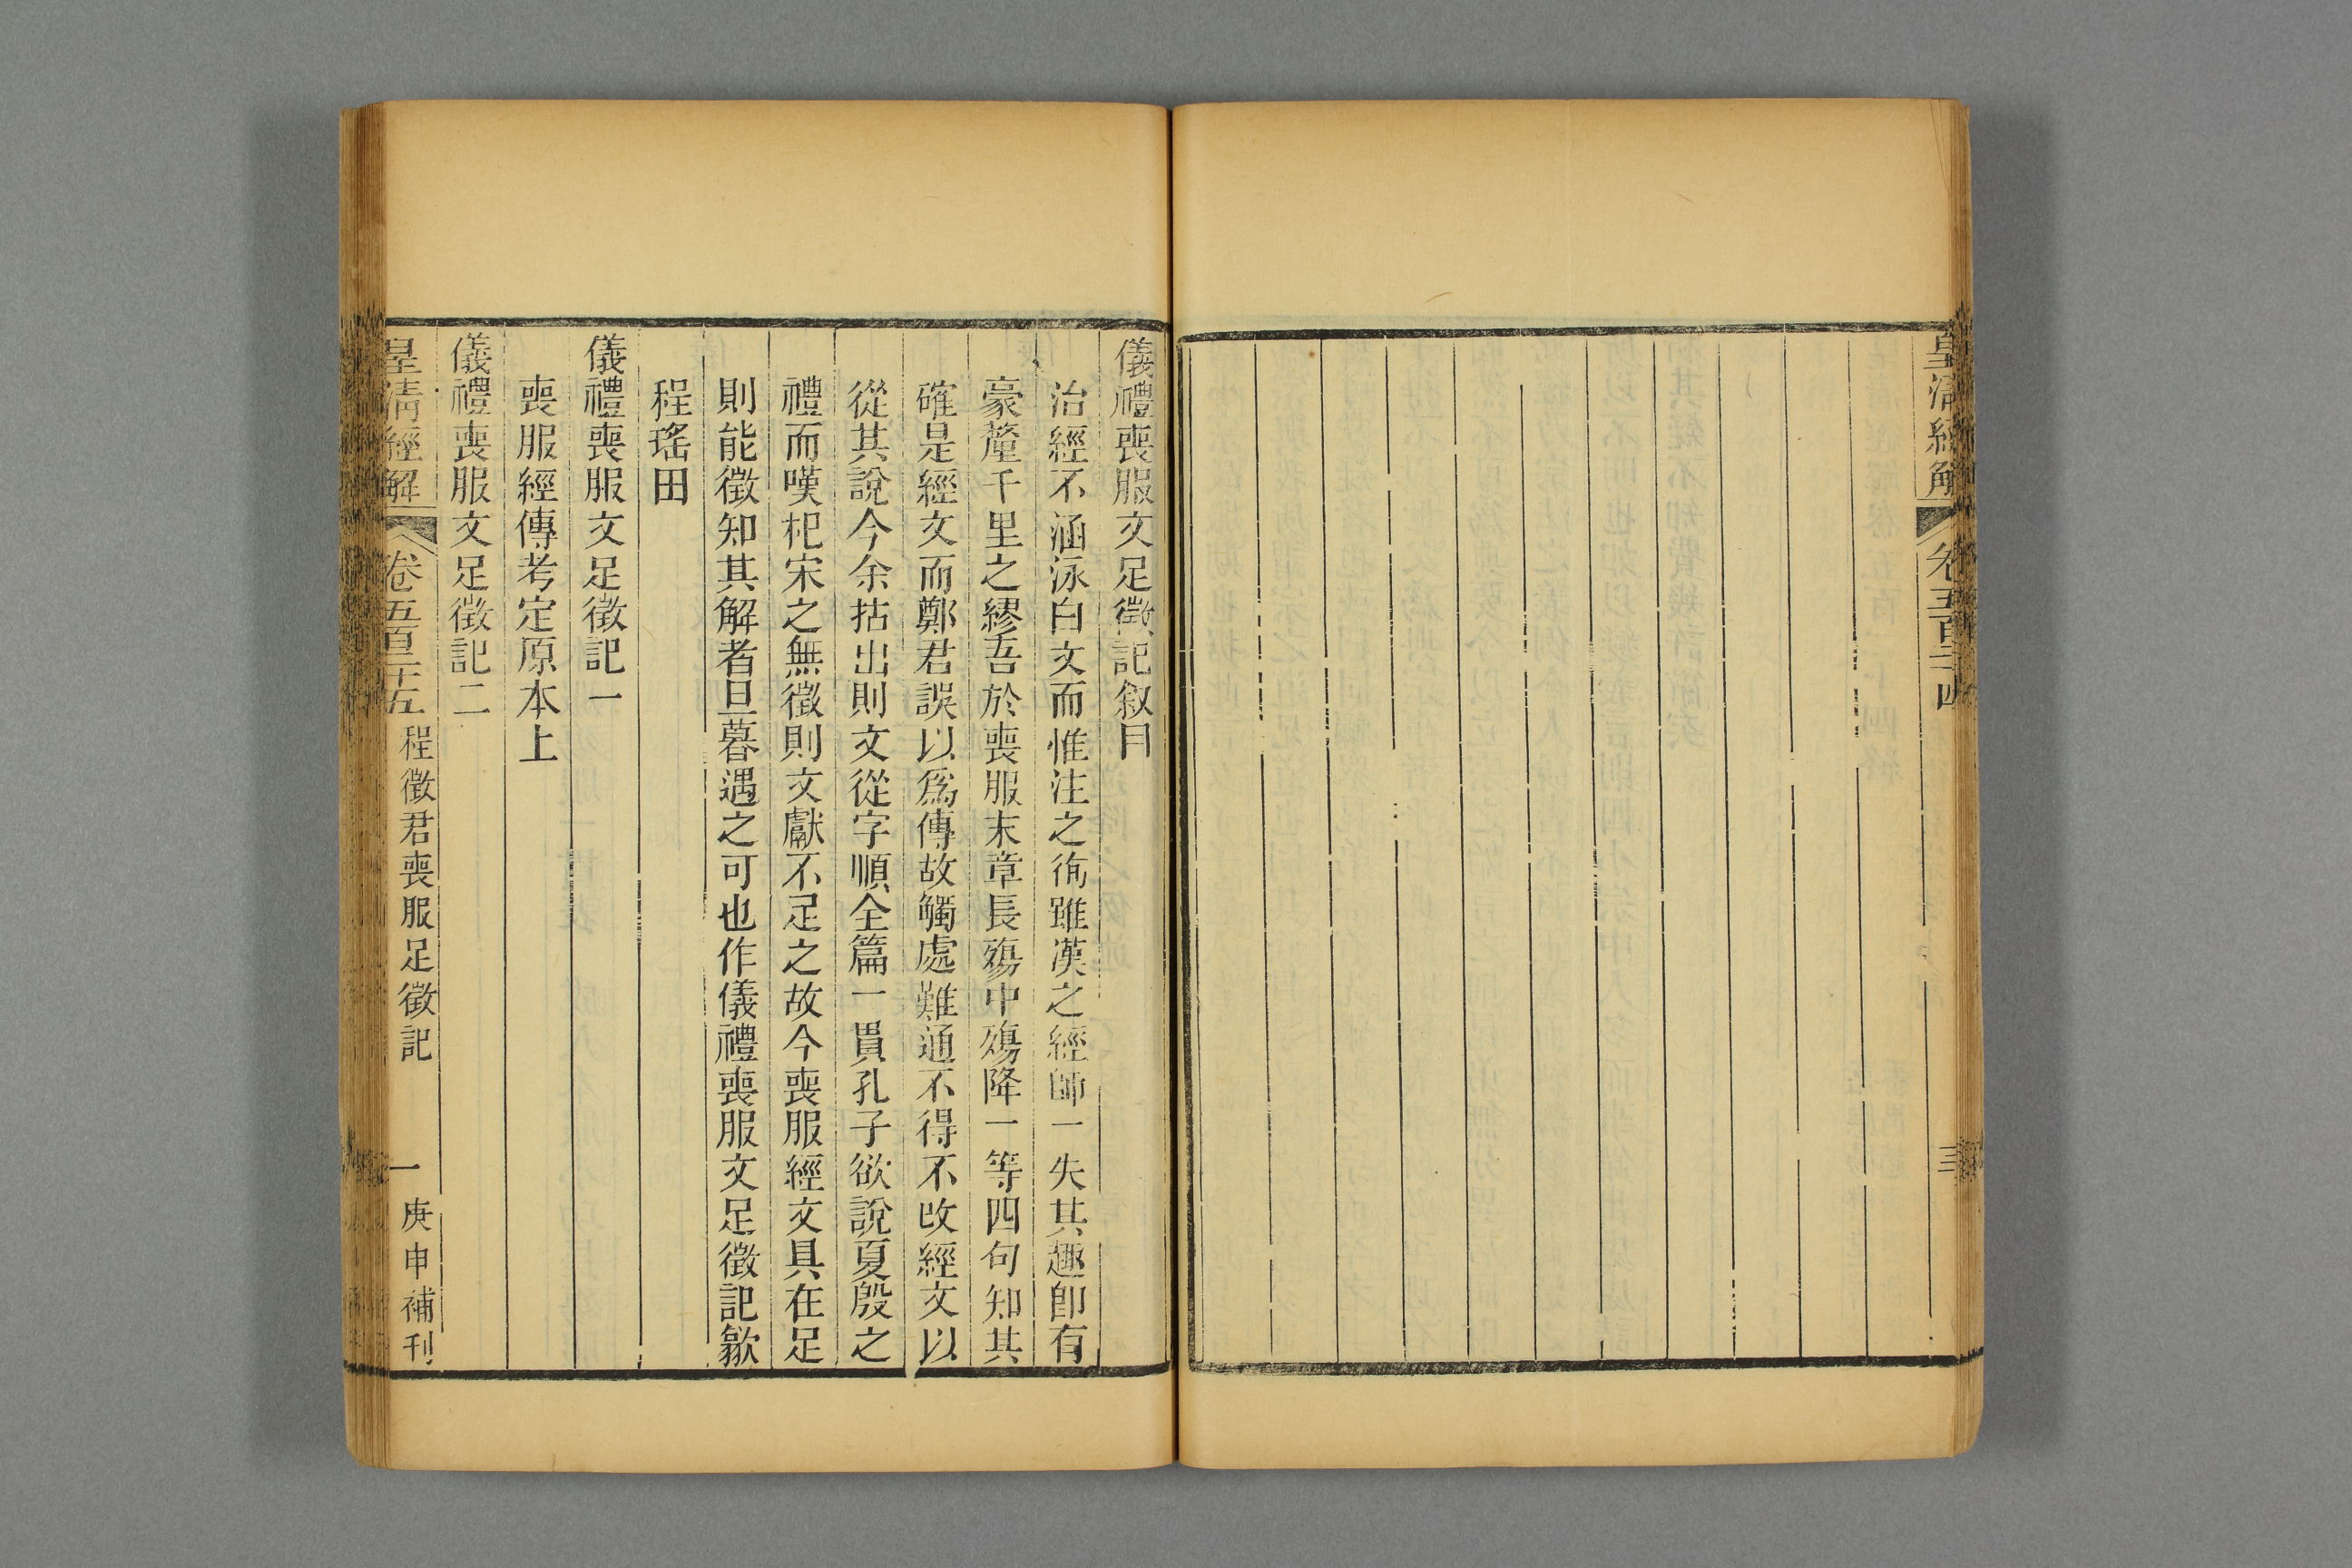 皇清經解
卷五百二十四
三
儀禮喪服文足徵記敘目
治經不涵泳白文而惟注之徇雖漢之經師一失其趣卽有
豪釐千里之繆吾於喪服末章長殤中殤降一等四句知其
確是經文而鄭君誤以爲傳故觸處難通不得不改經文以
從其說今余拈出則文從字順全篇一貫孔子欲說夏殷之
禮而嘆杞宋之無徵則文獻不足之故今喪服經文具在足
則能徵知其解者旦暮遇之可也作儀禮喪服文足徵記歙
程瑤田
儀禮喪服文足徵記一
喪服經傳考定原本上
儀禮喪服文足徵記二
皇清經解
卷五百二十五
程徵君喪服足徵記
一
庚申補刊